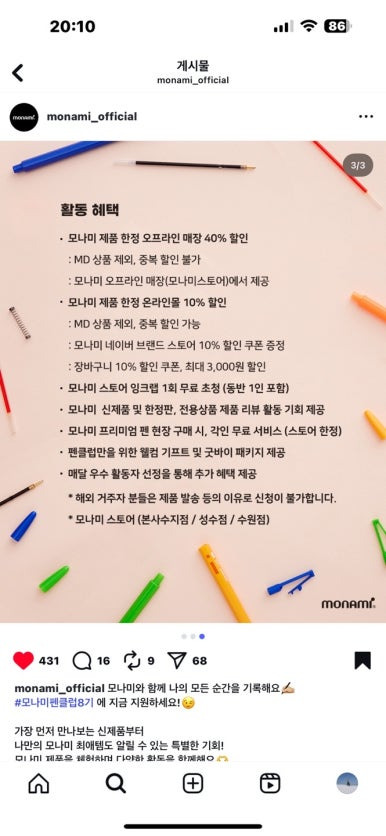 20:10
86
게시물
monami_official
monami
monami_official
3/3
활동 혜택
· 모나미 제품 한정 오프라인 매장 40% 할인
: MD 상품 제외, 중복 할인 불가
: 모나미 오프라인 매장(모나미스토어)에서 제공
· 모나미 제품 한정 온라인몰 10% 할인
: MD 상품 제외, 중복 할인 가능
: 모나미 네이버 브랜드 스토어 10% 할인 쿠폰 증정
: 장바구니 10% 할인 쿠폰, 최대 3,000원 할인
· 모나미 스토어 잉크랩 1회 무료 초청 (동반 1인 포함)
· 모나미 신제품 및 한정판, 전용상품 제품 리뷰 활동 기회 제공
· 모나미 프리미엄 펜 현장 구매 시, 각인 무료 서비스 (스토어 한정)
· 펜클럽만을 위한 웰컴 기프트 및 굿바이 패키지 제공
· 매달 우수 활동자 선정을 통해 추가 혜택 제공
* 해외 거주자 분들은 제품 발송 등의 이유로 신청이 불가합니다.
* 모나미 스토어 (본사수지점 / 성수점 / 수원점)
monami
431 16 9 68
monami_official 모나미와 함께 나의 모든 순간을 기록해요✍🏻
#모나미펜클럽8기 에 지금 지원하세요!😉
가장 먼저 만나보는 신제품부터
나만의 모나미 최애템도 알릴 수 있는 특별한 기회!
모나미 제품을 체험하며 다양한 활동을 함께해요